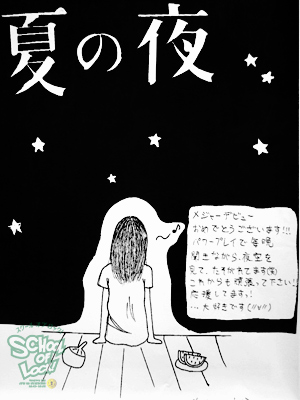 夏の夜
メジャーデビュー
おめでとうございます!!!
パワープレイで毎晩
聞きながら、夜空を
見て、たそがれてます(笑)
これからも頑張って下さい!!
応援してます。!
...大好きです(〃∇〃)
SCHOOL
OF
LOCK!